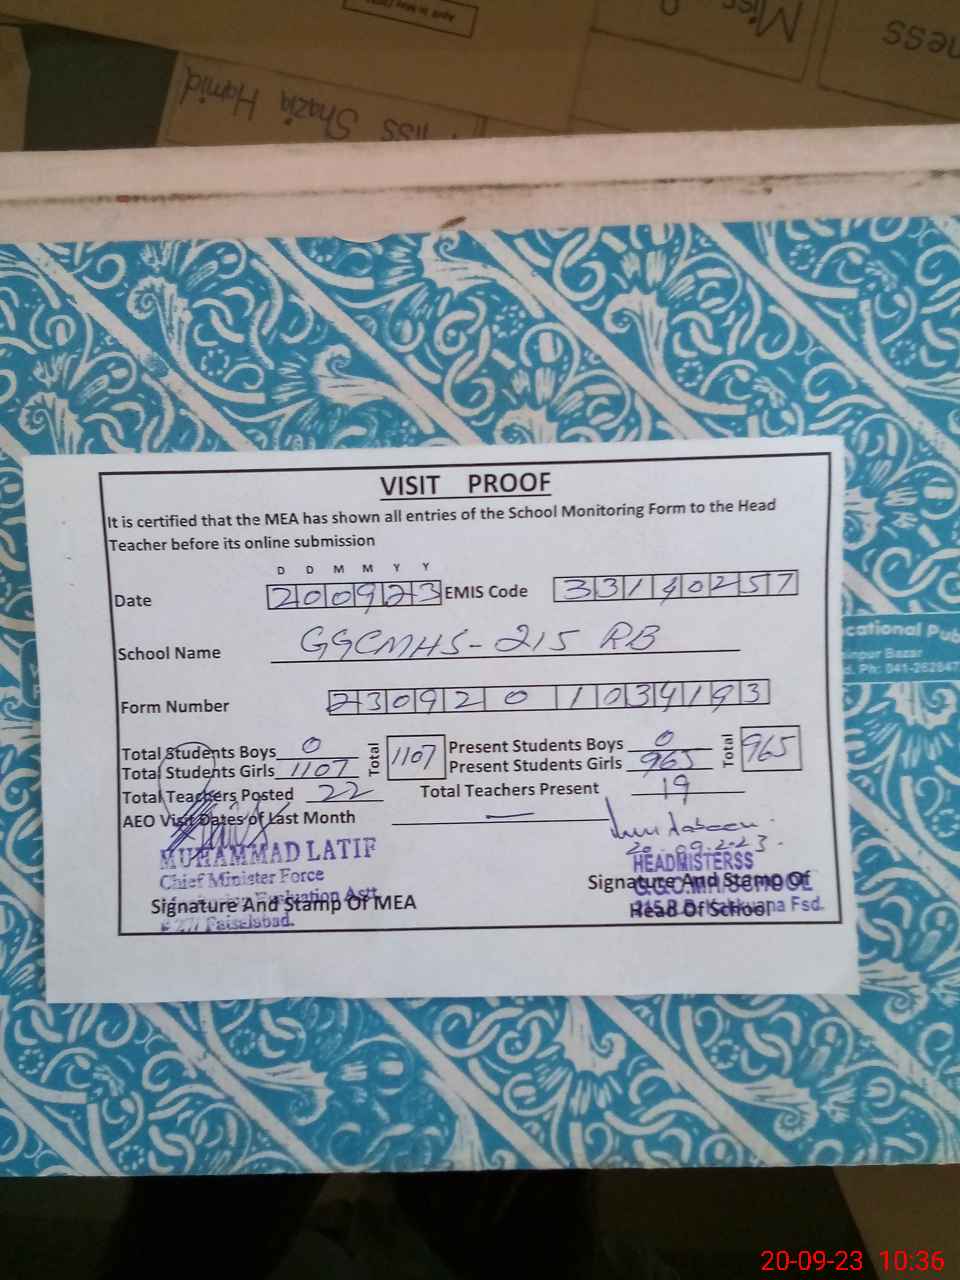 Miss
ness
Miss Shazia Hamid
VISIT PROOF
It is certified that the MEA has shown all entries of the School Monitoring Form to the Head
Teacher before its online submission
D D M M Y Y
Date 200923 EMIS Code 33140257
School Name GGCMHS-215 RB
Form Number 2309201034193
Total Students Boys 0 Total 1107 Present Students Boys 0 Total 965
Total Students Girls 1107 Present Students Girls 965
Total Teachers Posted 22 Total Teachers Present 19
AEO Visit Dates of Last Month —
20.09.2023.
MUHAMMAD LATIF
Chief Minister Force
Evaluation Astt
Faisalabad.
Signature And Stamp Of MEA
HEADMISTERSS
G.G.C.M.H SCHOOL
215 R.B. Fsd.
Signature And Stamp Of
Head Of School
cational Pub
Bazar
Ph: 041-262847
20-09-23 10:36